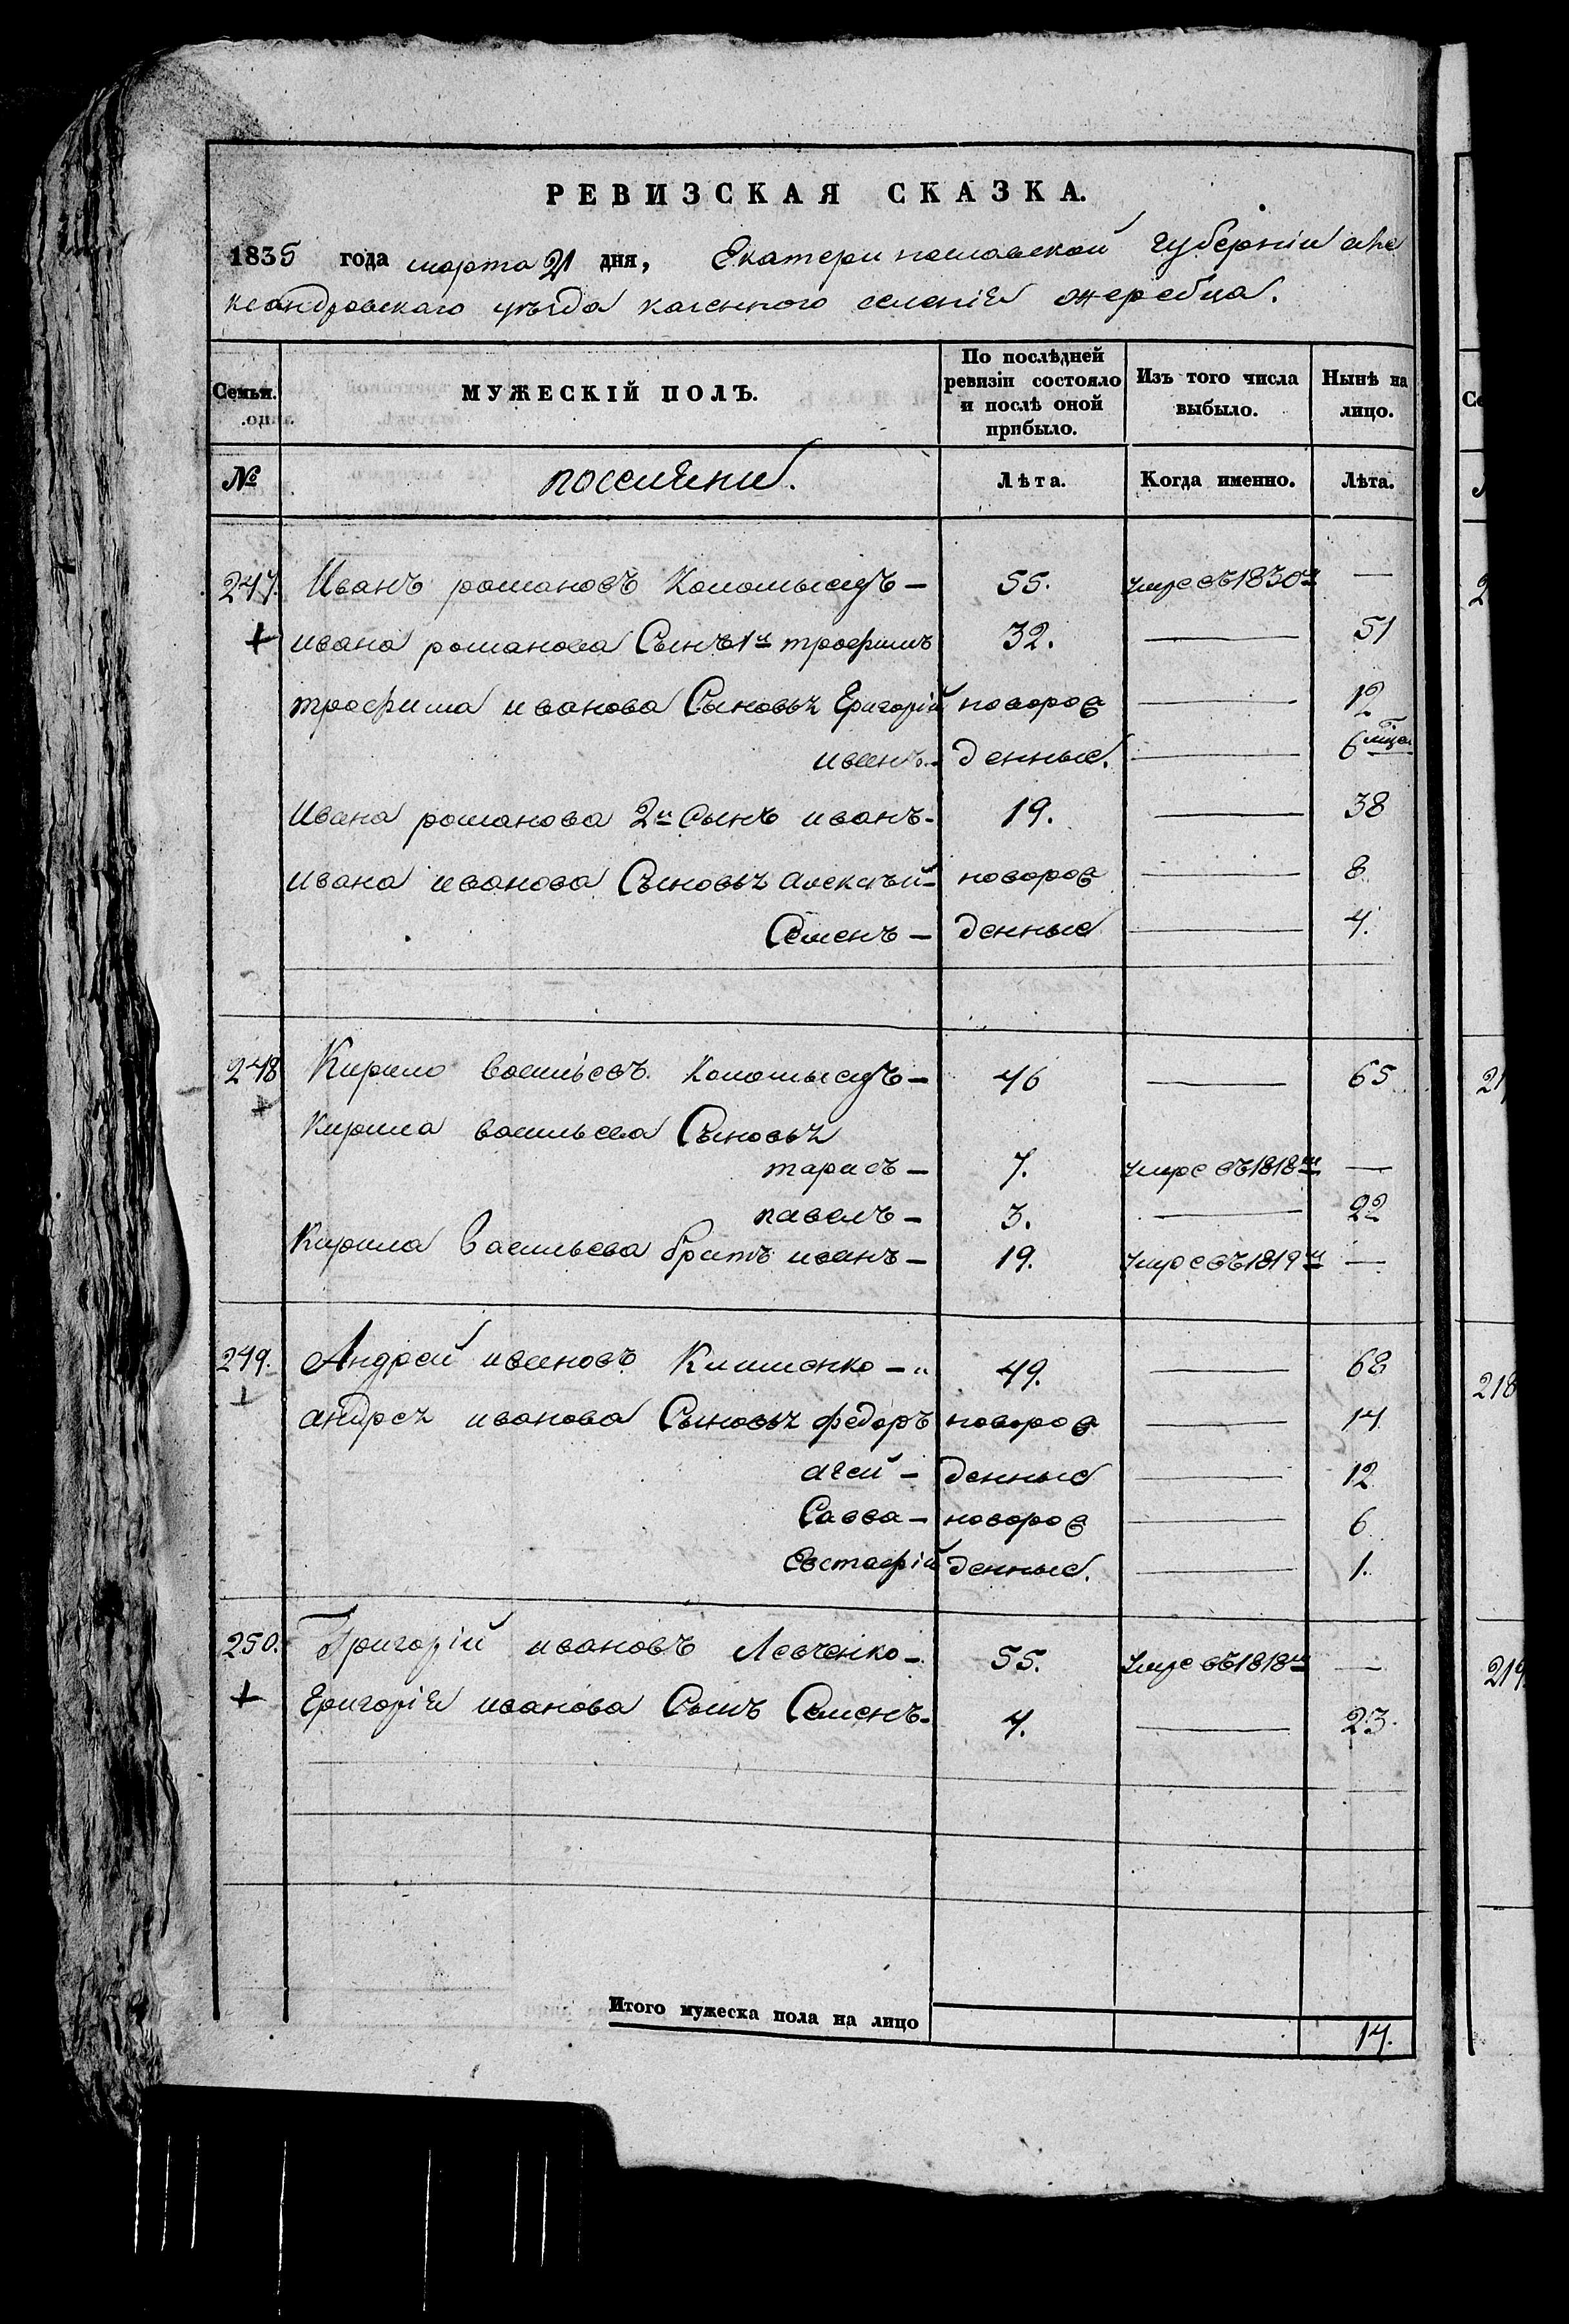 РЕВИЗСКАЯ СКАЗКА.
1835 года марта 21 дня, Екатеринославской губерніи але
ксандровскаго уѣзда казенного селенія жеребца.
Семьи. МУЖЕСКІЙ ПОЛЪ. По послѣдней ревизіи состояло и послѣ оной прибыло. Изъ того числа выбыло. Нынѣ на лицо.
№ поселяни. Лѣта. Когда именно. Лѣта.
247. Иванъ романовъ Коломыецъ — 55. умре въ 1830м —
+ ивана романова Сынъ 1й трофимъ 32. — 51
трофима иванова Сыновья Григорій новорож — 12
иванъ — денные. — 6 мѣся
Ивана романова 2й Сынъ иванъ - 19. — 38
ивана иванова Сыновья алексѣй - новорож — 8
Семенъ — денные — 4.
248 Кирило васильевъ Коломыецъ — 46 — 65
+ Кирила васильева Сыновья
тарасъ — 7. умре въ 1818м —
павелъ — 3. — 22
Кирила васильева братъ иванъ — 19. умре въ 1819м —
249. Андрей ивановъ Клименко — 49. — 68
+ андрея иванова Сыновья федоръ новорож — 14
агей — денные — 12
Савва — новорож — 6
Евстафій денные. — 1.
250. Григорій ивановъ Левченко — 55. умре въ 1818м —
+ Григорія иванова Сынъ Семенъ - 4. — 23.
Итого мужеска пола на лицо 14.